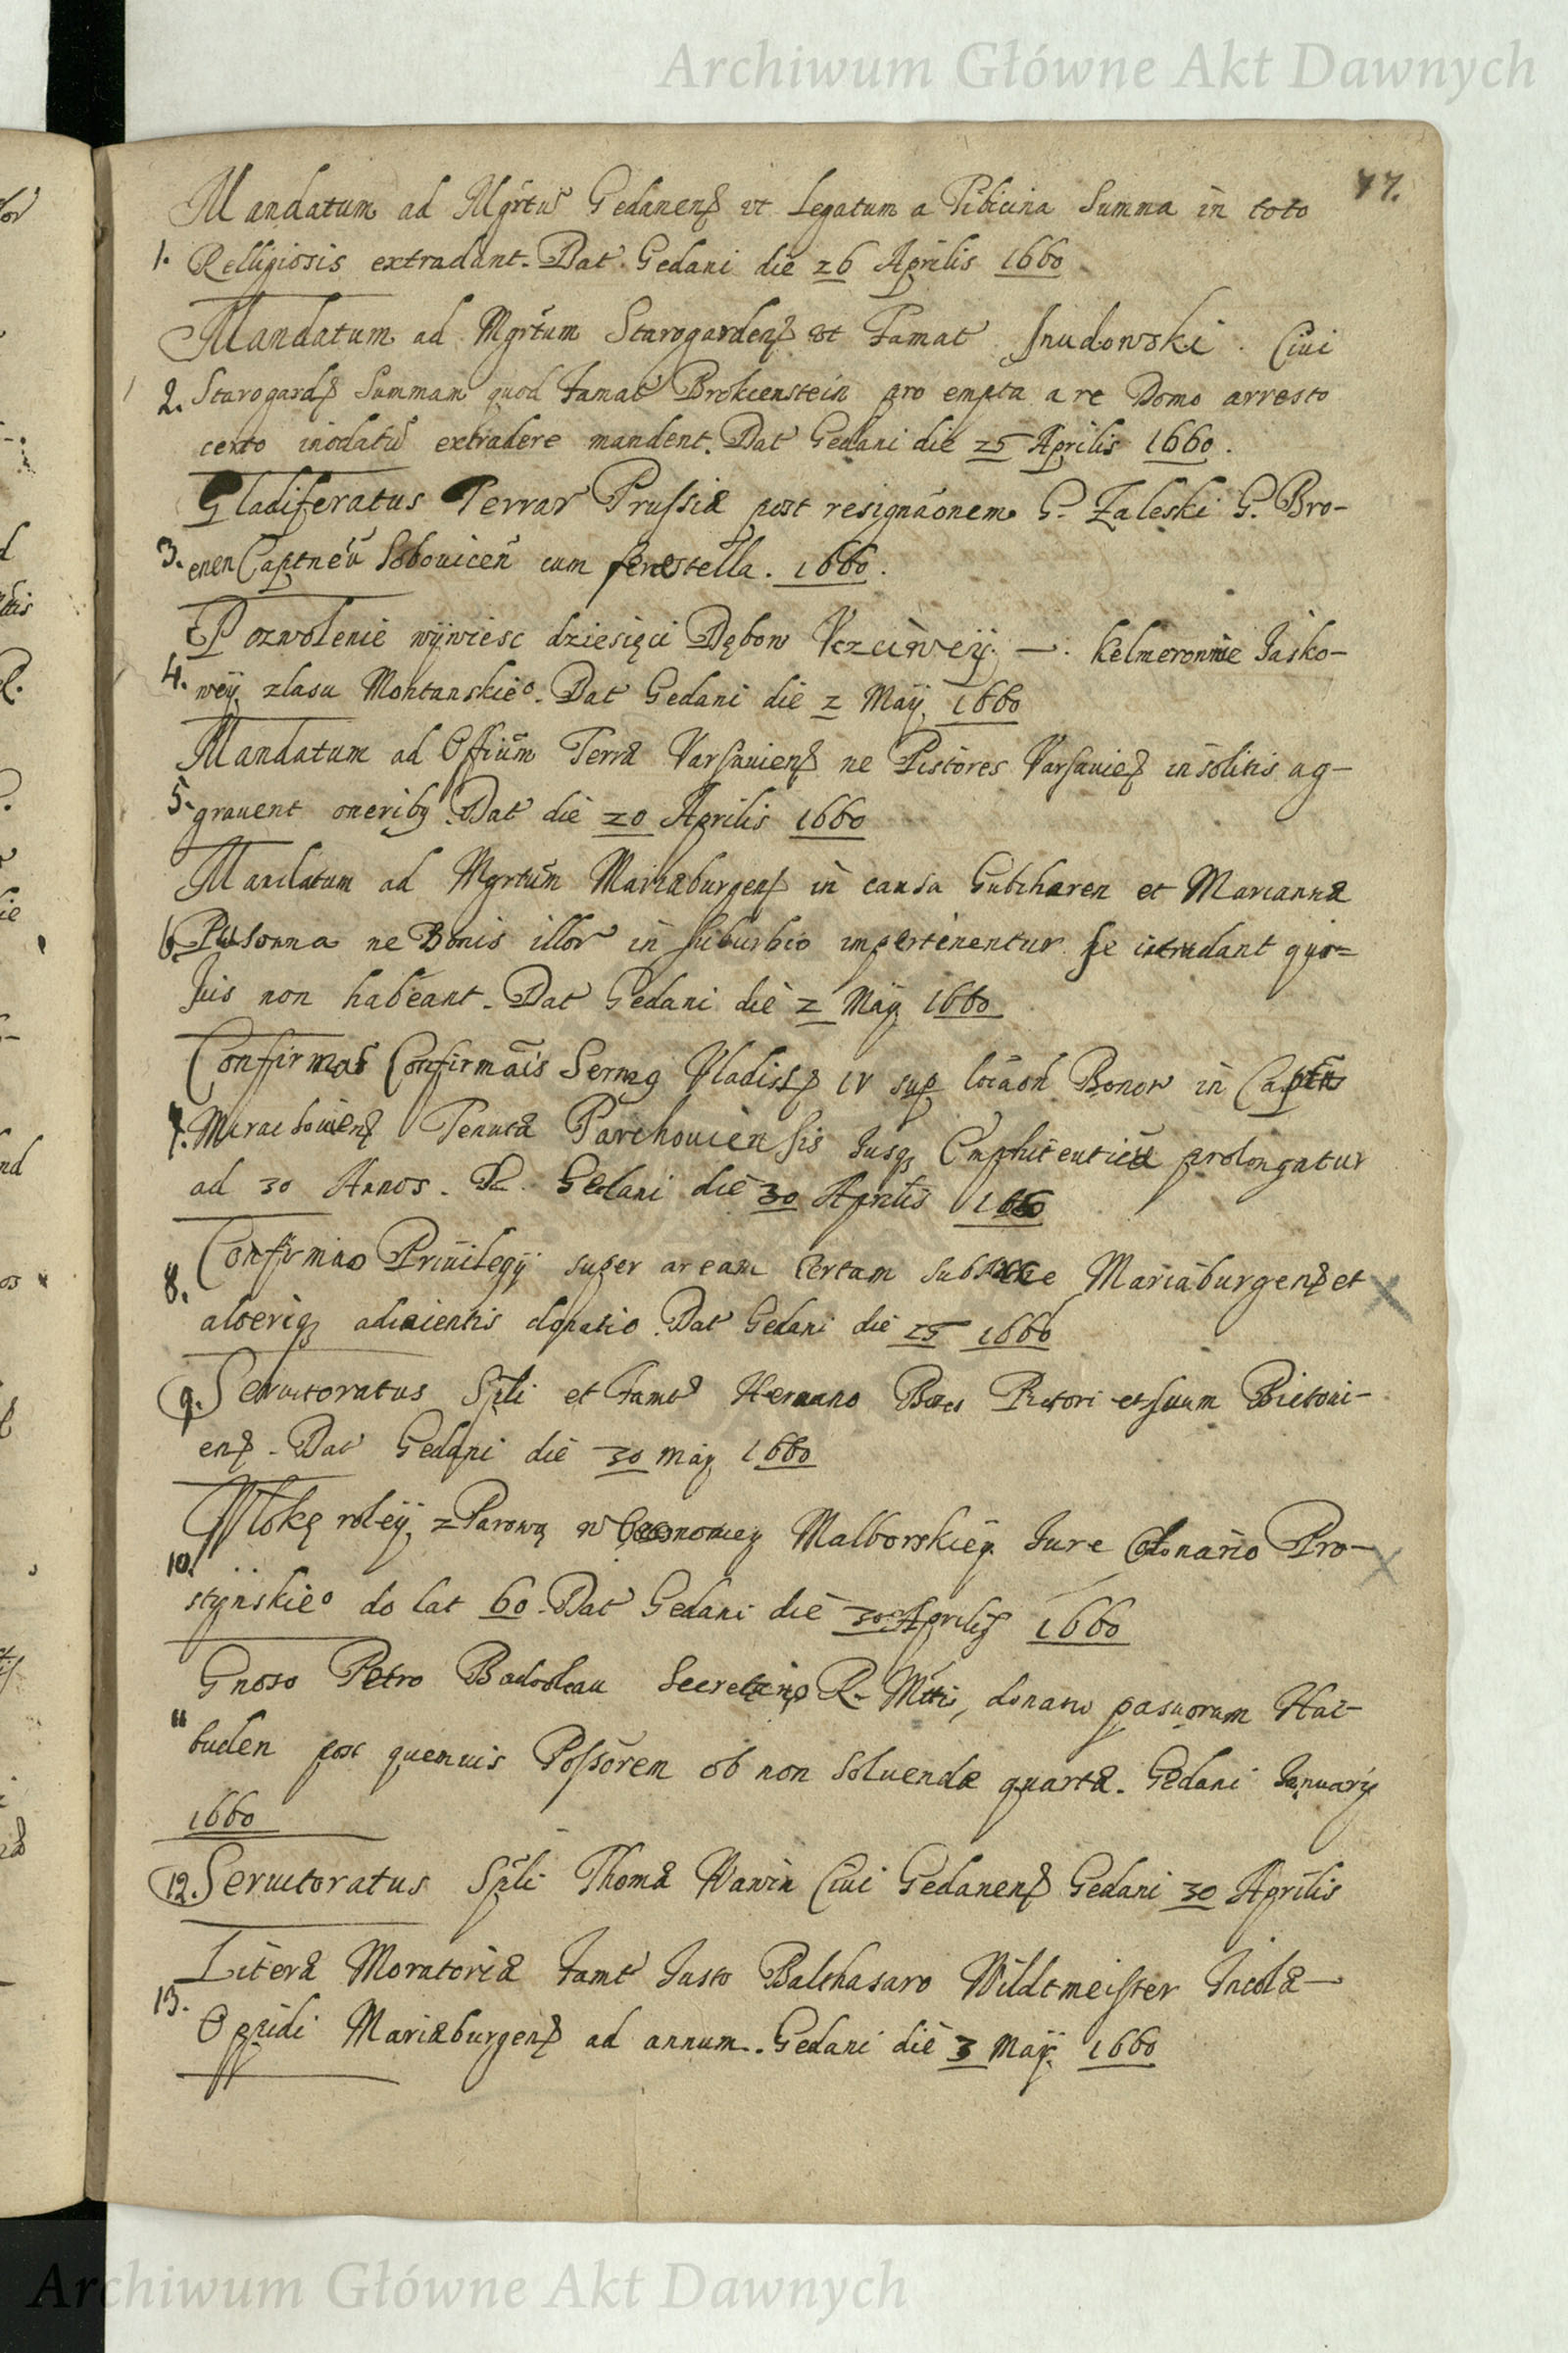 Archiwum Główne Akt Dawnych
77.
Mandatum ad Mgrtū Gedanens ut Legatum a Tibicina Summa in toto
1. Relligiosis extradant. Dat. Gedani die 26 Aprilis 1660
Mandatum ad Mgrtum Starogardens ut Famat Snudowski. Ciui
2. Starogards Summam quod Famat Brokienstein pro empta a re Domo arresto
certo inodatū extradere mandent. Dat Gedani die 25 Aprilis 1660.
Gladiferatus Terrar Prussiæ post resignāonem G. Zaleski G. Bro-
3. enen Captneū Sobouiceñ cum fenestella. 1660.
Pozwolenie wÿwiesc dziesięci Dębow Vczciweÿ —. kelmeronnie Jasko-
4. weÿ z lasu Montanskieo. Dat Gedani die 2 Maÿ 1660
Mandatum ad Offiūm Terræ Varsauiens ne Pistores Varsauies insolitis ag-
5. grauent oneribq Dat die 20 Aprilis 1660
Mandatum ad Mgrtūm Mariæburgens in causa et Mariannæ
6. ne Bonis illor in suburbio impertinentur se intrudant quo-
Juis non habeant. Dat Gedani die 2 Maÿ 1660
Confirmāis Sermq Vladisl IV sup locāoñ Bonor in Captu
7. Mirachouiens Tenutæ Parchouiensis Jusq Emphiteuticū prolongatur
ad 30 Annos. D. Gedani die 30 Aprilis 1660
Confirmāo Priuilegÿ super aream Certam Mariæburgens et
8. alteriq adiacientis donatio. Dat Gedani die 25 1660
9. Seruitoratus Spli et Famt Hermano et suum Pictori-
ens. Dat Gedani die 30 maÿ 1660
Włokę roleÿ z Parową w Malborskieÿ Jure Pro-
10. stÿnskieo do lat 60. Dat Gedani die 30 Aprilis 1660
Gnoso Petro Secretario R. Mttis, donatio Hai-
11 buden post quemuis Possōrem ob non soluendæ quartæ. Gedani Januarÿ
1660
12. Seruitoratus Spli Thomæ Hawin Ciui Gedanens Gedani 30 Aprilis
Literæ Moratoriæ Famt Justo Balthasaro Wildtmeister Incolæ —
13. Oppidi Mariæburgens ad annum. Gedani die 3 Maÿ 1660
Archiwum Główne Akt Dawnych